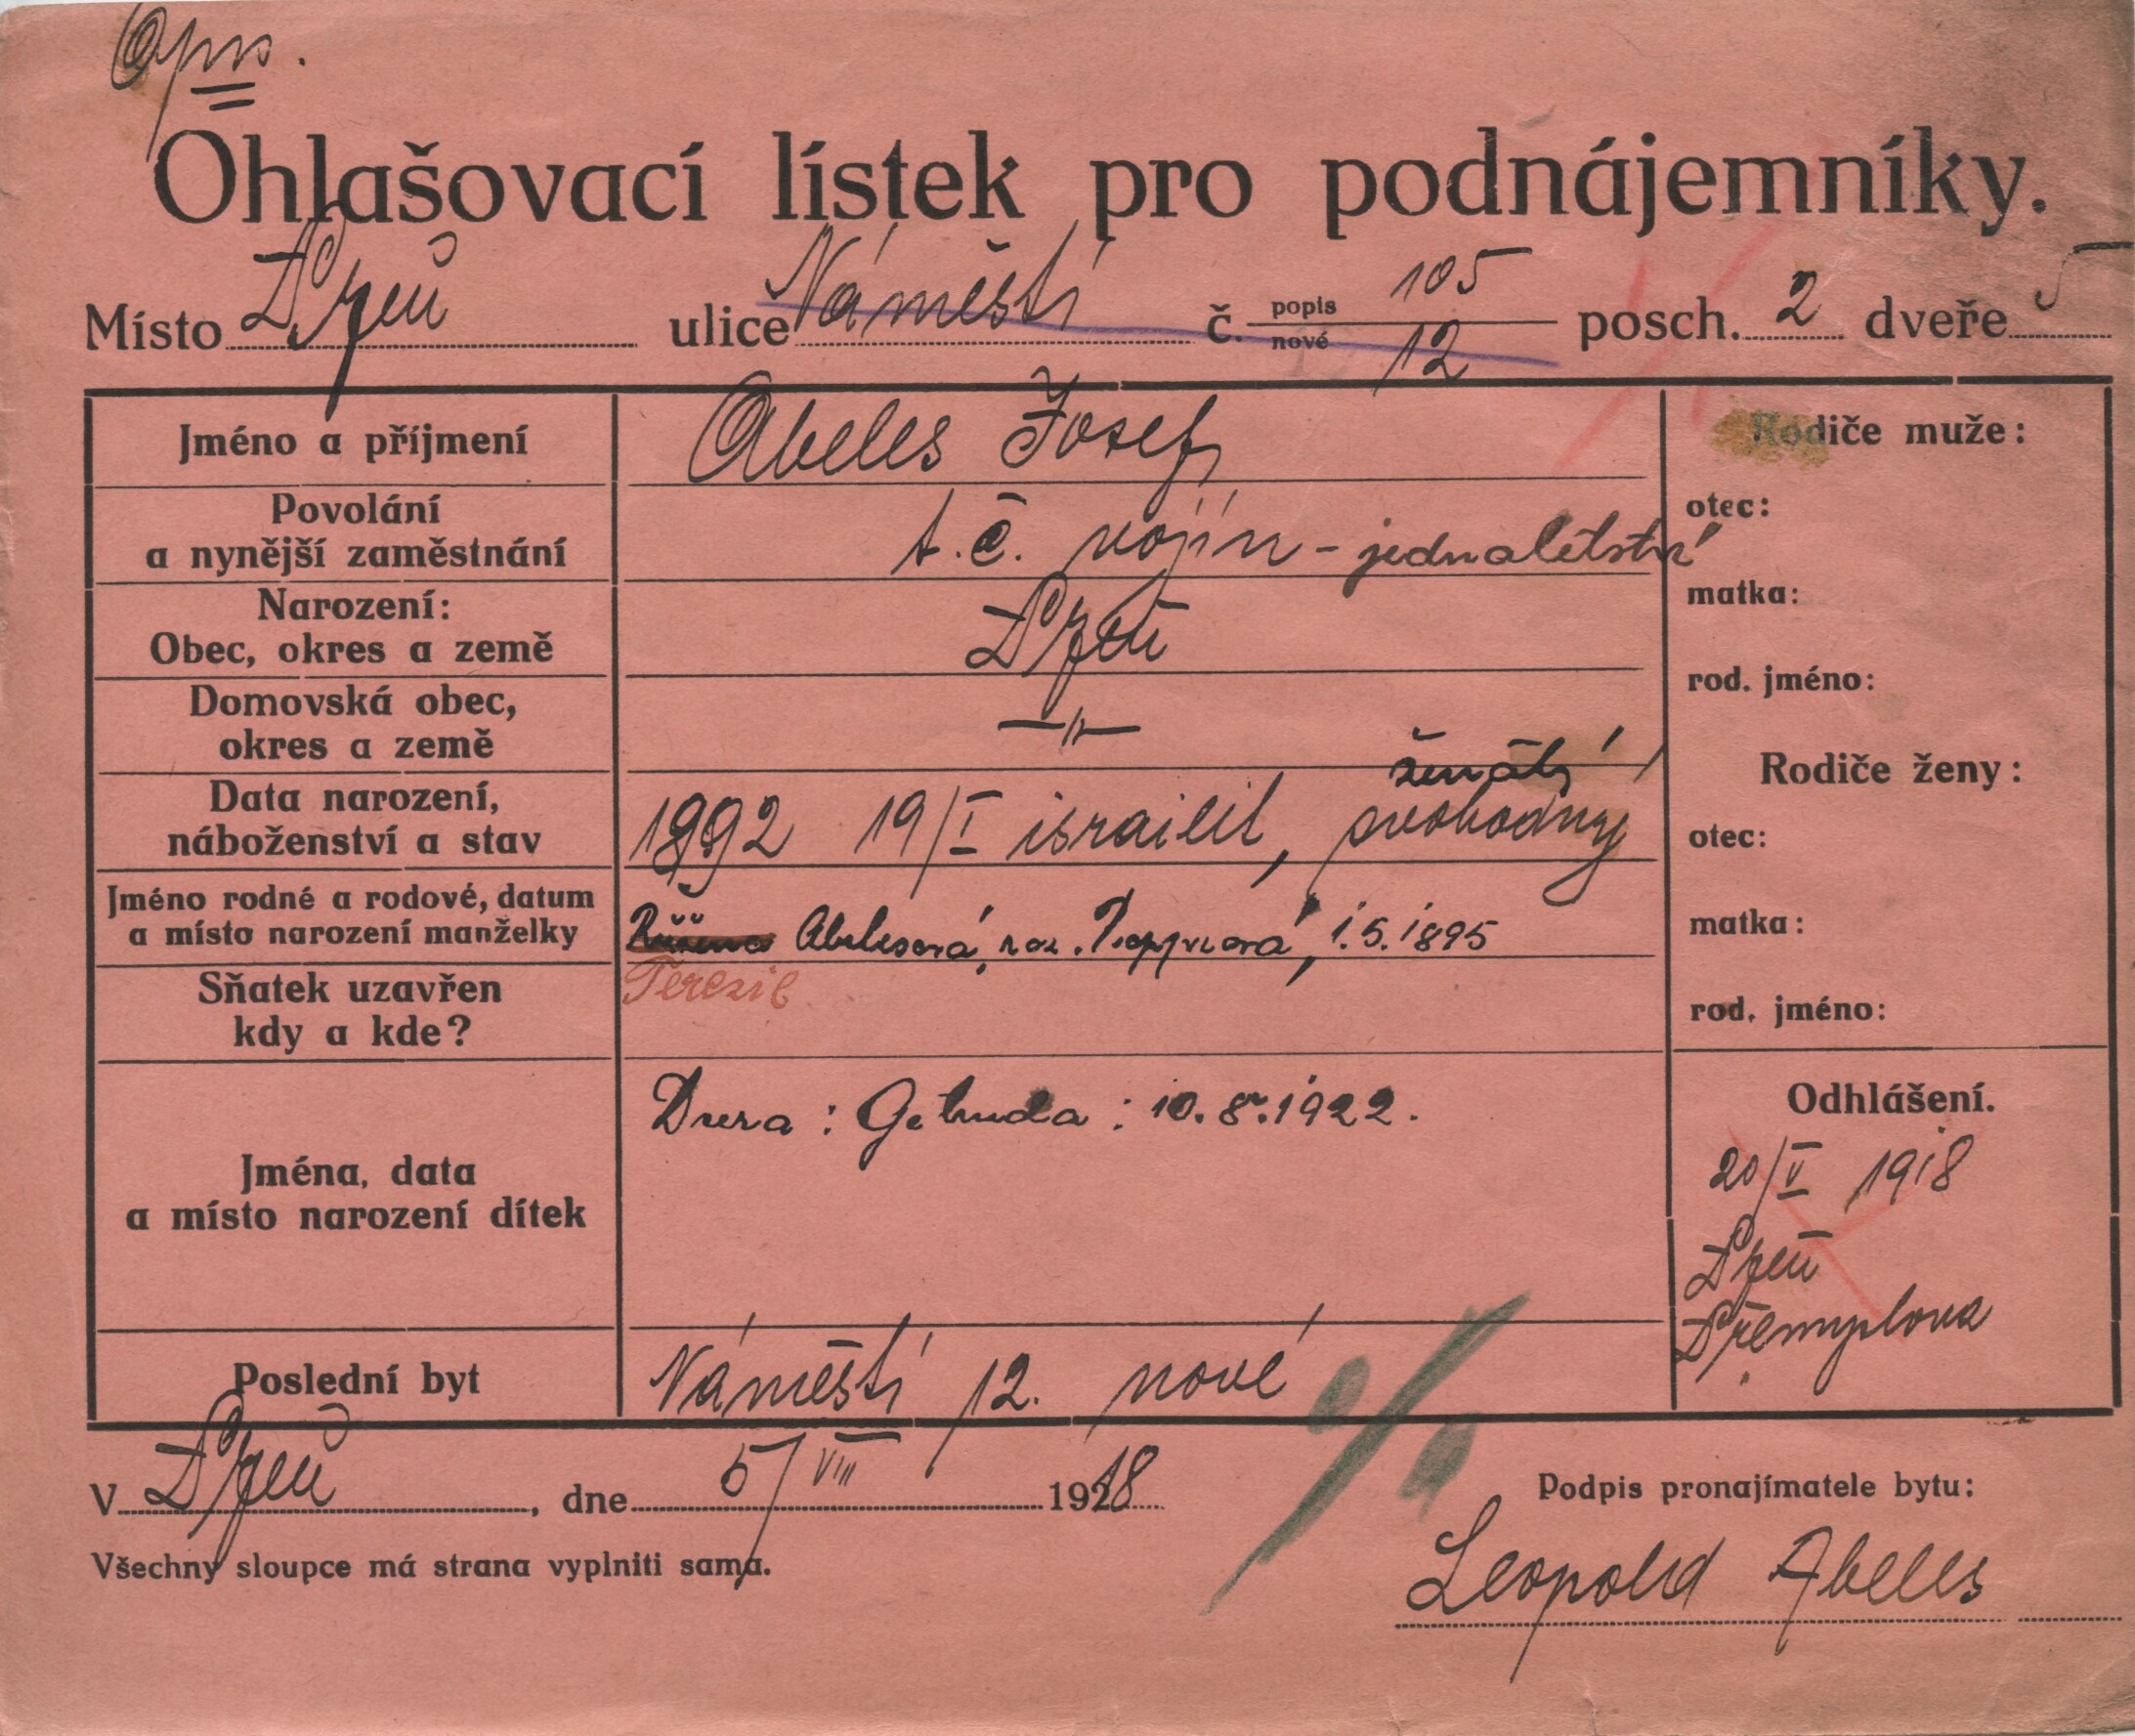 Opis.
Ohlašovací lístek pro podnájemníky.
Místo Plzeň ulice Náměstí č. popis 105 nové 12 posch. 2 dveře 5
Jméno a příjmení Abeles Josef
Povolání
a nynější zaměstnání t. č. vojín - jednatelství
Narození:
Obec, okres a země Plzeň
Domovská obec,
okres a země —"—
ženatý
Data narození,
náboženství a stav 1892 19/I israelit, svobodný
Jméno rodné a rodové, datum
a místo narození manželky Růžena Abelesová, roz. 1.5.1895
Terezie
Sňatek uzavřen
kdy a kde?
Jména, data
a místo narození dítek Dcera: Getruda: 10.8.1922.
Poslední byt Náměstí 12. nové
Rodiče muže:
otec:
matka:
rod. jméno:
Rodiče ženy:
otec:
matka:
rod. jméno:
Odhlášení.
20/V 1918
Plzeň
Přemyslova
V Plzeň, dne 5/VIII 1918
Všechny sloupce má strana vyplniti sama.
Podpis pronajímatele bytu:
Leopold Abeles